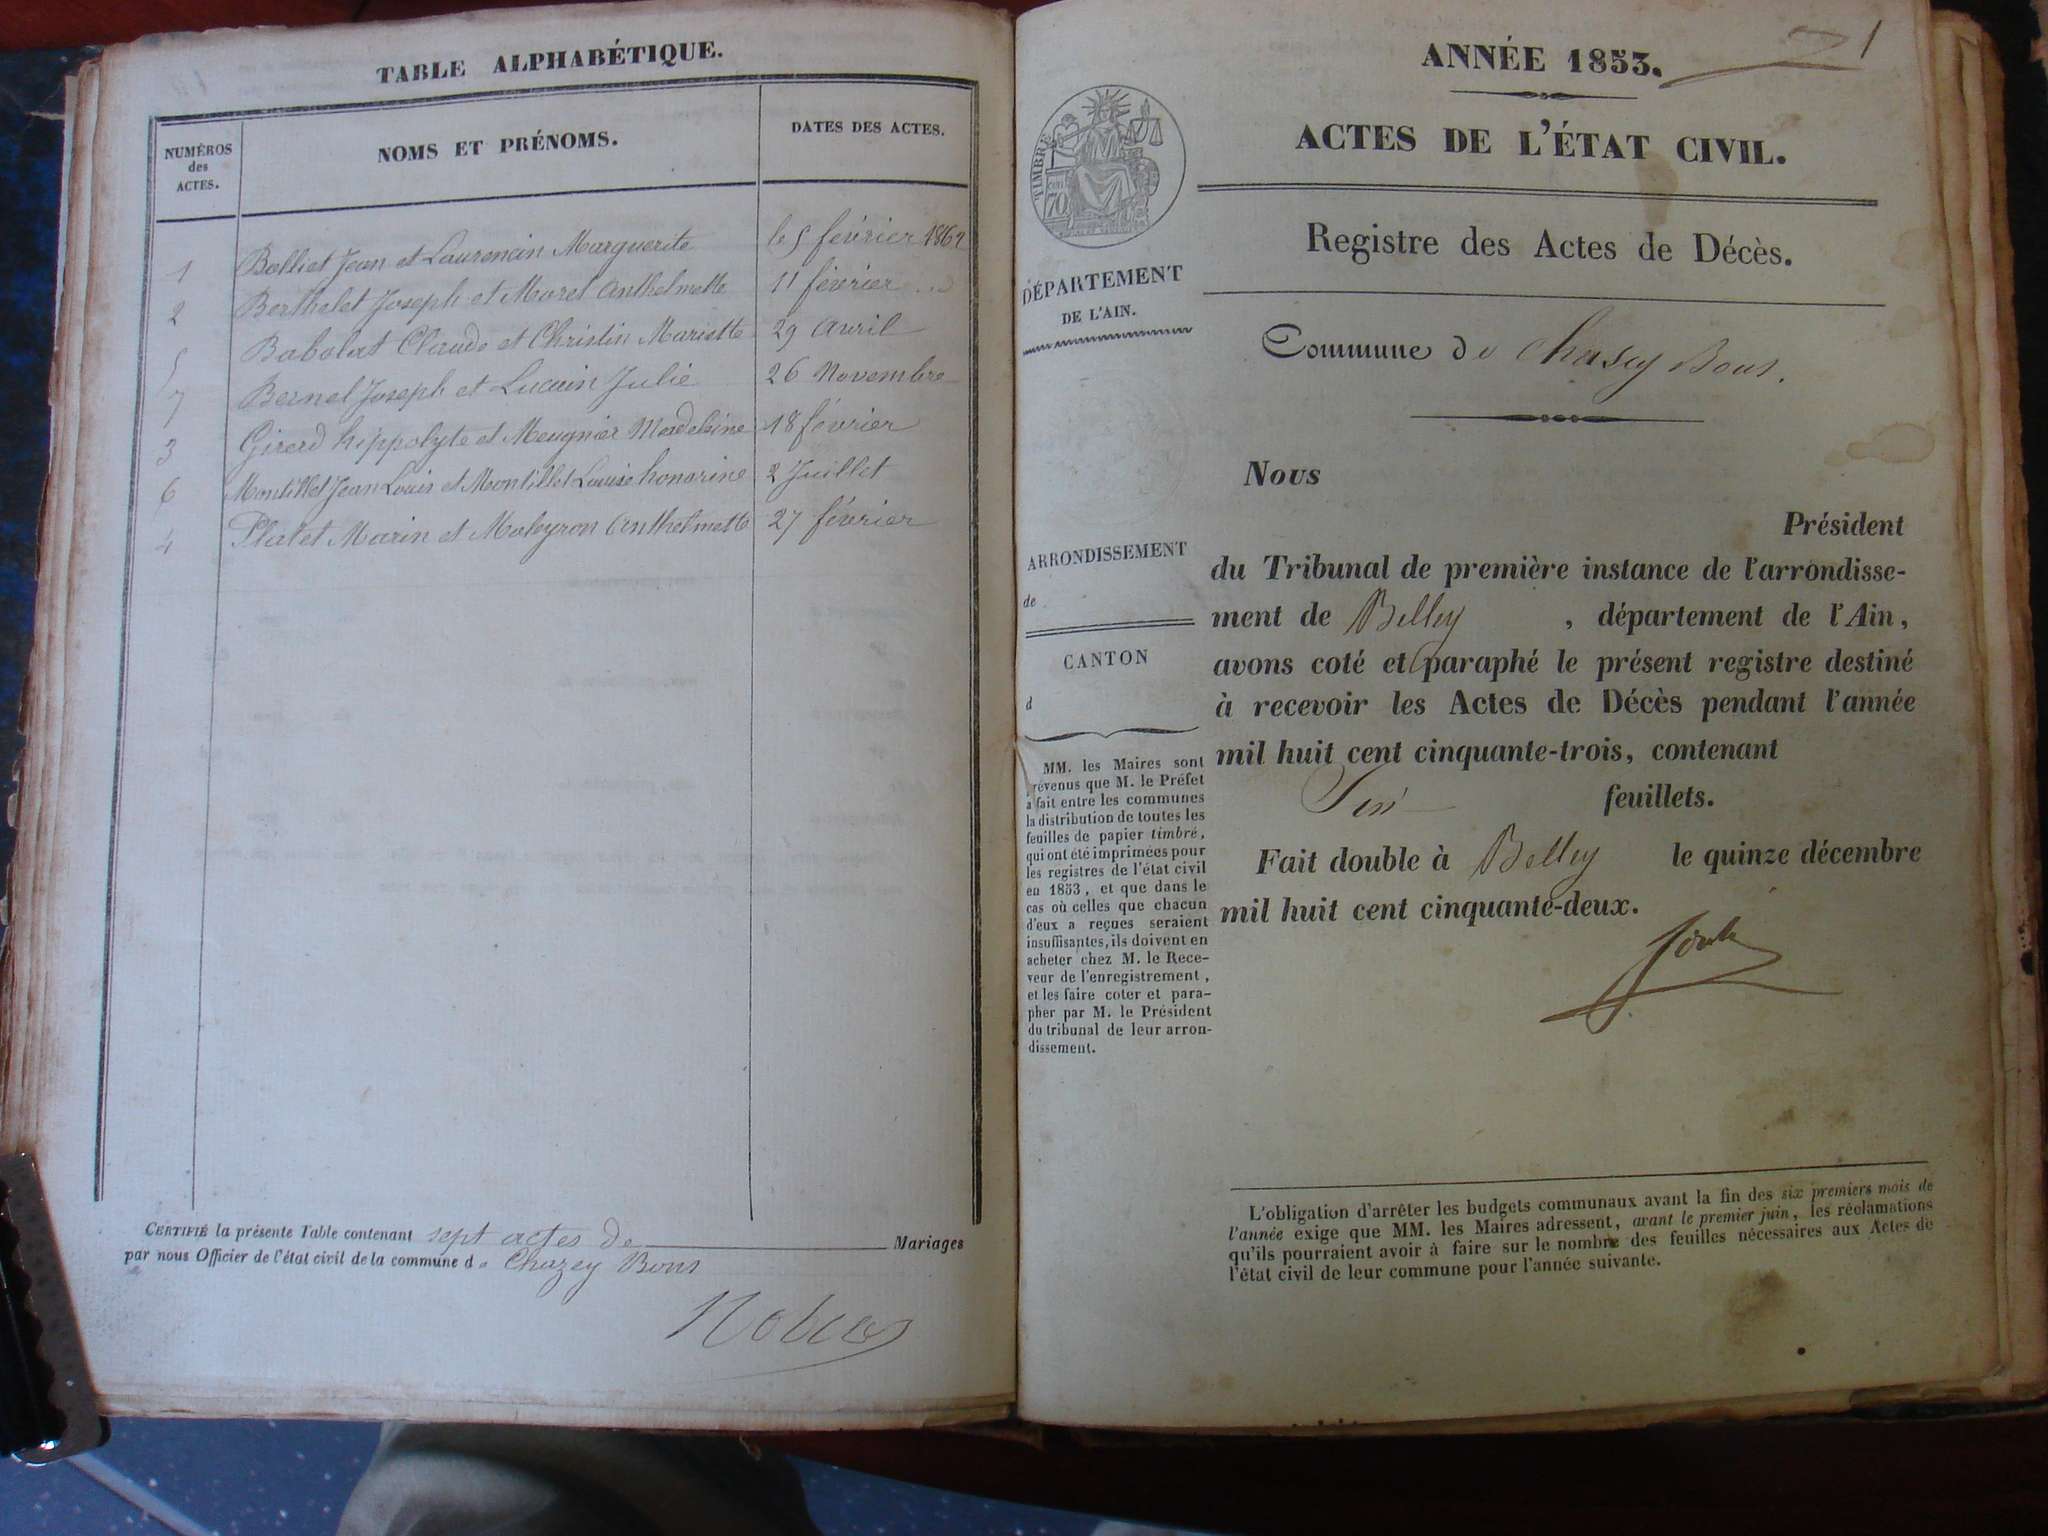 TABLE ALPHABÉTIQUE.
NUMÉROS des ACTES.
NOMS ET PRÉNOMS.
DATES DES ACTES.
1 Balliet Jean et Laurencin Marguerite le 5 février 1862
2 Berthelet Joseph et Morel Anthelmette 11 février
5 Babolat Claude et Christin Mariette 29 Avril
7 Bernel Joseph et Lucain Julie 26 Novembre
3 Girerd hippolyte et Meugnier Madeleine 18 février
6 Montillet Jean Louis et Montillet Louise honorine 2 Juillet
4 Platet Marin et Anthelmette 27 février
CERTIFIÉ la présente Table contenant sept actes de Mariages
par nous Officier de l'état civil de la commune de Chazey Bons
1
ANNÉE 1853.
ACTES DE L'ÉTAT CIVIL.
Registre des Actes de Décès.
TIMBRE
70
DÉPARTEMENT
DE L'AIN.
Commune de Chasey Bons.
ARRONDISSEMENT
de
CANTON
d
MM. les Maires sont
prévenus que M. le Préfet
a fait entre les communes
la distribution de toutes les
feuilles de papier timbré,
qui ont été imprimées pour
les registres de l'état civil
en 1853, et que dans le
cas où celles que chacun
d'eux a reçues seraient
insuffisantes, ils doivent en
acheter chez M. le Rece-
veur de l'enregistrement,
et les faire coter et para-
pher par M. le Président
du tribunal de leur arron-
dissement.
Nous
Président
du Tribunal de première instance de l'arrondisse-
ment de Belley, département de l'Ain,
avons coté et paraphé le présent registre destiné
à recevoir les Actes de Décès pendant l'année
mil huit cent cinquante-trois, contenant
feuillets.
Fait double à Belley le quinze décembre
mil huit cent cinquante-deux.
L'obligation d'arrêter les budgets communaux avant la fin des six premiers mois de
l'année exige que MM. les Maires adressent, avant le premier juin, les réclamations
qu'ils pourraient avoir à faire sur le nombre des feuilles nécessaires aux Actes de
l'état civil de leur commune pour l'année suivante.